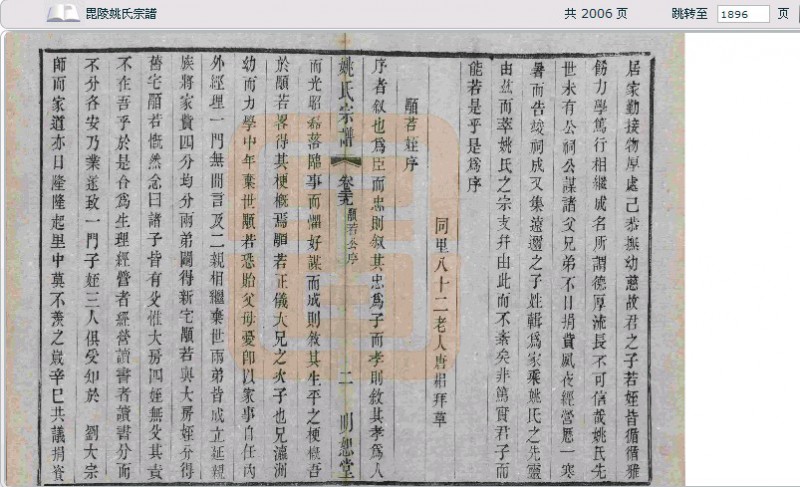 毘陵姚氏宗譜
共 2006 页
跳转至 1896 页
居家勤接物厚處己恭撫幼慈故君之子若姪皆循循雅
飭力學篤行相繼成名所謂德厚流長不可信哉姚氏先
世未有公祠公謀諸父兄弟不日捐貲夙夜經營歷一寒
暑而告竣祠成又集遠邇之子姓輯爲家乘姚氏之先靈
由然而萃姚氏之宗支幷由此而不紊矣非篤實君子而
能若是乎是爲序
同里八十二老人唐相拜草
顒若姪序
序者叙也爲臣而忠則叙其忠爲子而孝則叙其孝爲人
姚氏宗譜 卷三九 顒若公序 二 明恕堂
而光昭磊落臨事而懼好謀而成則敘其生平之梗概吾
於顒若畧得其梗概焉顒若正儀大兄之次子也兄瀛洲
幼而力學中年棄世顒若恐貽父母憂卽以家事自任內
外經理一門無間言及二親相繼棄世兩弟皆成立延親
族將家貲四分均分兩弟鬮得新宅顒若與大房姪分得
舊宅顒若慨然念曰諸子皆有父惟大房四姪無父其責
不在吾乎於是合爲生理經營者經營讀書者讀書分而
不分各安乃業遂致一門子姪三人俱受知於 劉大宗
師而家道亦日隆隆起里中莫不羨之歲辛巳共議捐資